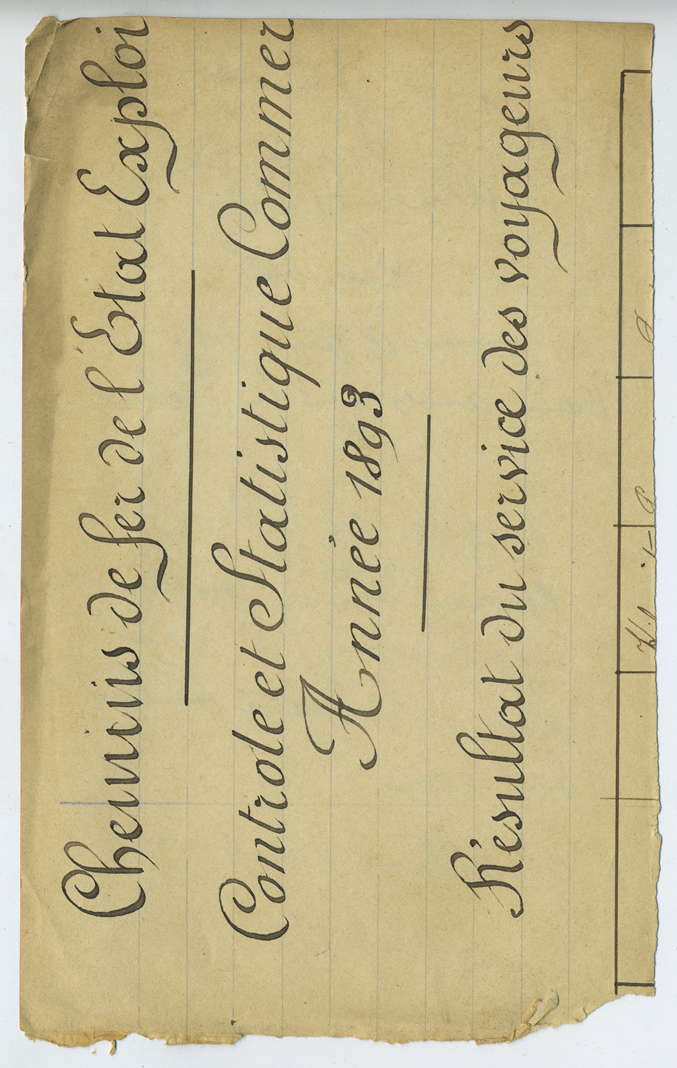 Chemins de fer de l'État Exploi
Controle et Statistique Commer
Année 1893
Résultat du service des voyageurs